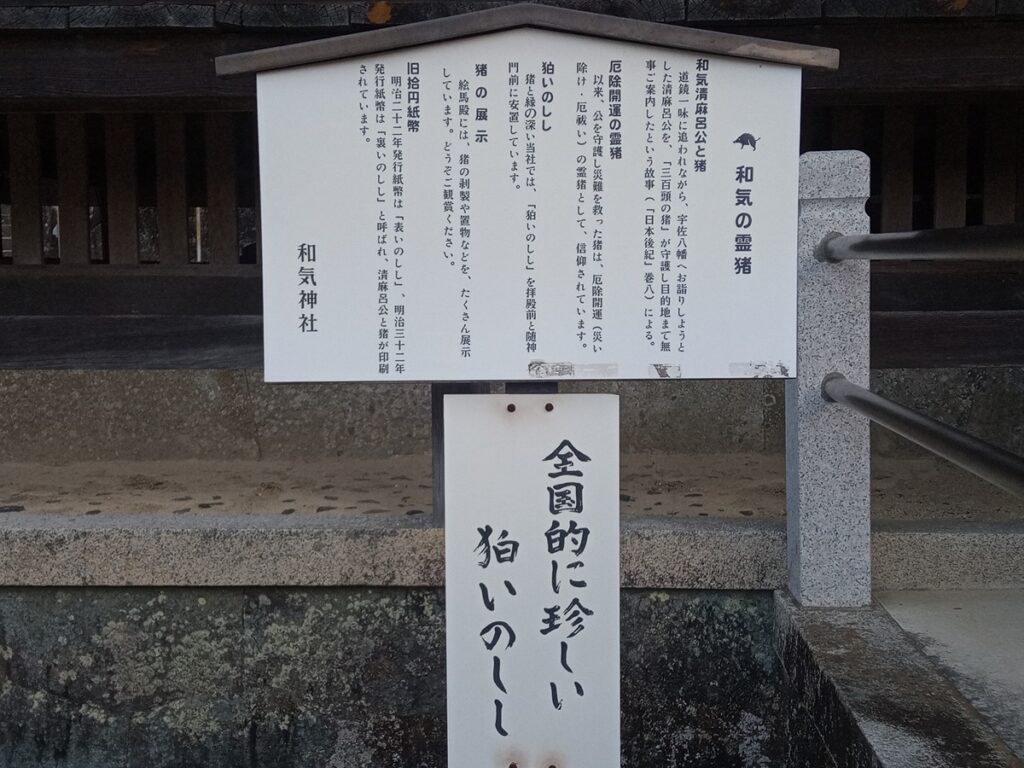 和気の霊猪
和気清麻呂公と猪
道鏡一味に追われながら、宇佐八幡へお詣りしようと
した清麻呂公を、「三百頭の猪」が守護し目的地まで無
事ご案内したという故事（「日本後紀」巻八）による。
厄除開運の霊猪
以来、公を守護し災難を救った猪は、厄除開運（災い
除け・厄祓い）の霊猪として、信仰されています。
狛いのしし
猪と縁の深い当社では、「狛いのしし」を拝殿前と随神
門前に安置しています。
猪の展示
絵馬殿には、猪の剥製や置物などを、たくさん展示
しています。どうぞご観賞ください。
旧拾円紙幣
明治二十二年発行紙幣は「表いのしし」、明治三十二年
発行紙幣は「裏いのしし」と呼ばれ、清麻呂公と猪が印刷
されています。
和気神社
全国的に珍しい
狛いのしし